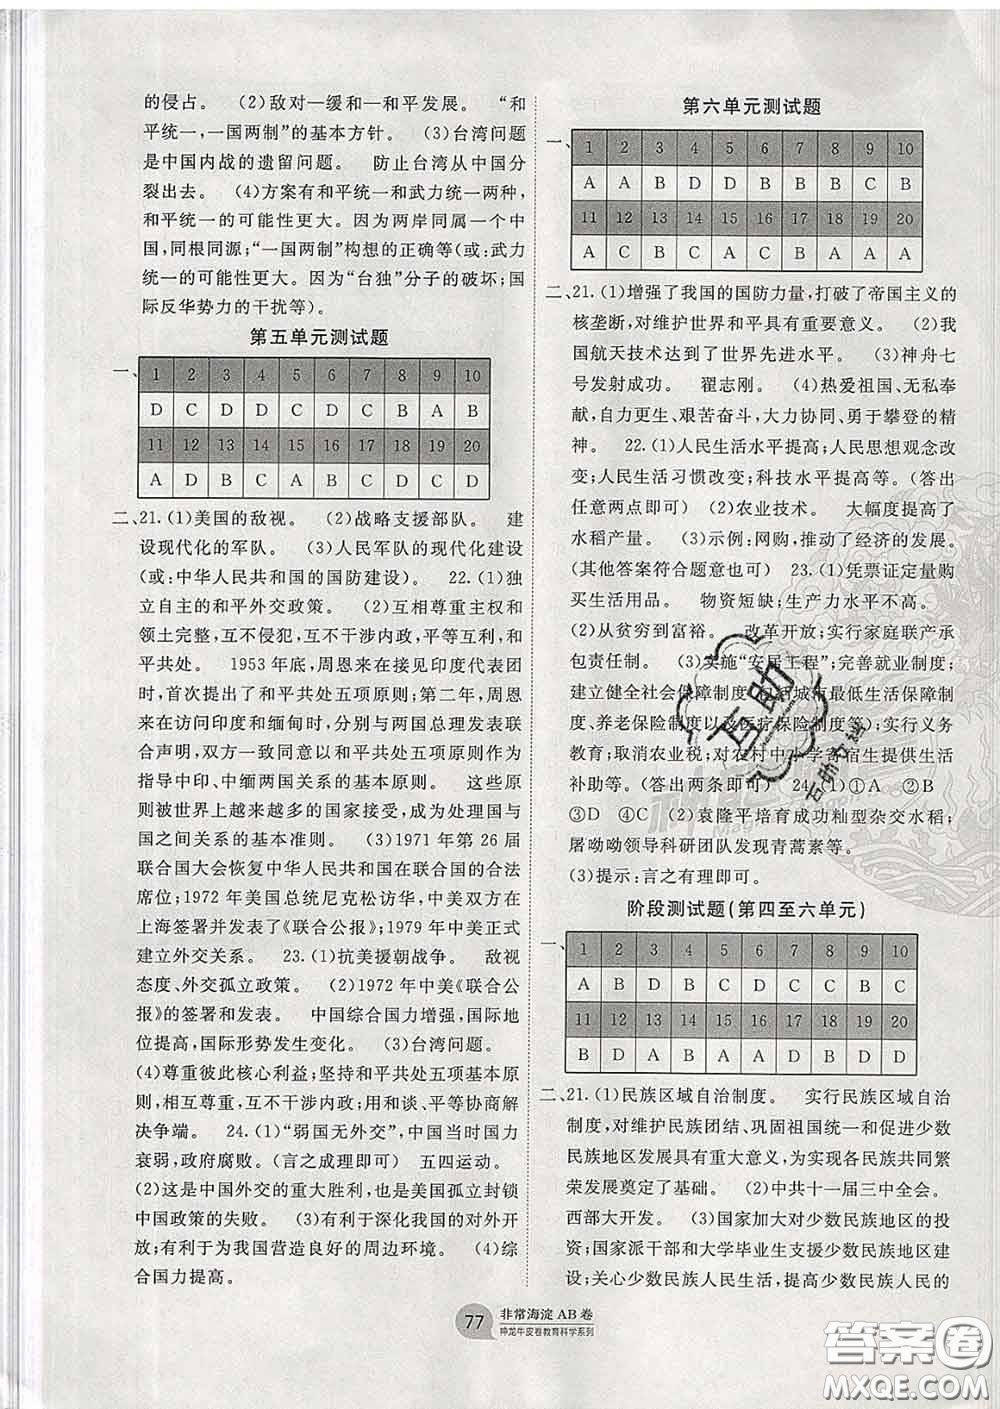 的侵占。　(2)敌对—缓和—和平发展。　“和
平统一,一国两制”的基本方针。　(3)台湾问题
是中国内战的遗留问题。　防止台湾从中国分
裂出去。　(4)方案有和平统一和武力统一两种,
和平统一的可能性更大。因为两岸同属一个中
国,同根同源;“一国两制”构想的正确等(或:武力
统一的可能性更大。因为“台独”分子的破坏;国
际反华势力的干扰等)。
第五单元测试题
一、 1 2 3 4 5 6 7 8 9 10
D C D D C D C B A B
11 12 13 14 15 16 17 18 19 20
A D B C A B C D C D
二、21.(1)美国的敌视。　(2)战略支援部队。　建
设现代化的军队。　(3)人民军队的现代化建设
(或:中华人民共和国的国防建设)。　22.(1)独
立自主的和平外交政策。　(2)互相尊重主权和
领土完整,互不侵犯,互不干涉内政,平等互利,和
平共处。　1953 年底,周恩来在接见印度代表团
时,首次提出了和平共处五项原则;第二年,周恩
来在访问印度和缅甸时,分别与两国总理发表联
合声明,双方一致同意以和平共处五项原则作为
指导中印、中缅两国关系的基本原则。　这些原
则被世界上越来越多的国家接受,成为处理国与
国之间关系的基本准则。　(3)1971 年第 26 届
联合国大会恢复中华人民共和国在联合国的合法
席位;1972 年美国总统尼克松访华,中美双方在
上海签署并发表了《联合公报》;1979 年中美正式
建立外交关系。　23.(1)抗美援朝战争。　敌视
态度、外交孤立政策。　(2)1972 年中美《联合公
报》的签署和发表。　中国综合国力增强,国际地
位提高,国际形势发生变化。　(3)台湾问题。
(4)尊重彼此核心利益;坚持和平共处五项基本原
则,平等相待,互不干涉内政;用和谈、平等协商解
决争端。　24.(1)“弱国无外交”,中国当时国力
衰弱,政府腐败。(言之成理即可)　五四运动。
(2)这是中国外交的重大胜利,也是美国孤立封锁
中国政策的失败。　(3)有利于深化我国的对外开
放;有利于为我国营造良好的周边环境。　(4)综
合国力提高。
第六单元测试题
一、 1 2 3 4 5 6 7 8 9 10
A A B D D B B B C B
11 12 13 14 15 16 17 18 19 20
A C B C A C B A A A
二、21.(1)增强了我国的国防力量,打破了帝国主义的
核垄断,对维护世界和平具有重要意义。　(2)我
国航天技术达到了世界先进水平。　(3)神舟七
号发射成功。　翟志刚。　(4)热爱祖国、无私奉
献,自力更生、艰苦奋斗,大力协同、勇于攀登的精
神。　22.(1)人民生活水平提高;人民思想观念改
变;人民生活习惯改变;科技水平提高等。(答出
任意两点即可)　(2)农业技术。　大幅度提高了
水稻产量。　(3)示例:网购,推动了经济的发展。
(其他答案符合题意也可)　23.(1)凭票证定量购
买生活用品。　物资短缺;生产力水平不高。
(2)从贫穷到富裕。　改革开放;实行家庭联产承
包责任制。　(3)实施“安居工程”;完善就业制度;
建立健全社会保障制度(包括城市最低生活保障制
度、养老保险制度以及医疗保险制度等);实行义务
教育;取消农业税;对农村中小学寄宿生提供生活
补助等。(答出两条即可)　24.(1)①A　②B
③D　④C　(2)袁隆平培育成功籼型杂交水稻;
屠呦呦领导科研团队发现青蒿素等。
(3)提示:言之有理即可。
阶段测试题(第四至六单元)
一、 1 2 3 4 5 6 7 8 9 10
A B D B C D C C B C
11 12 13 14 15 16 17 18 19 20
B D A B A A D B D D
二、21.(1)民族区域自治制度。　实行民族区域自治
制度,对维护民族团结、巩固祖国统一和促进少数
民族地区发展具有重大意义,为实现各民族共同繁
荣发展奠定了基础。　(2)中共十一届三中全会。
西部大开发。　(3)国家加大对少数民族地区的投
资;国家派干部和大学毕业生支援少数民族地区建
设;关心少数民族人民生活,提高少数民族人民的
77 非常海淀 AB 卷
神龙牛皮卷教育科学系列
互助
答案圈
MXQE.COM